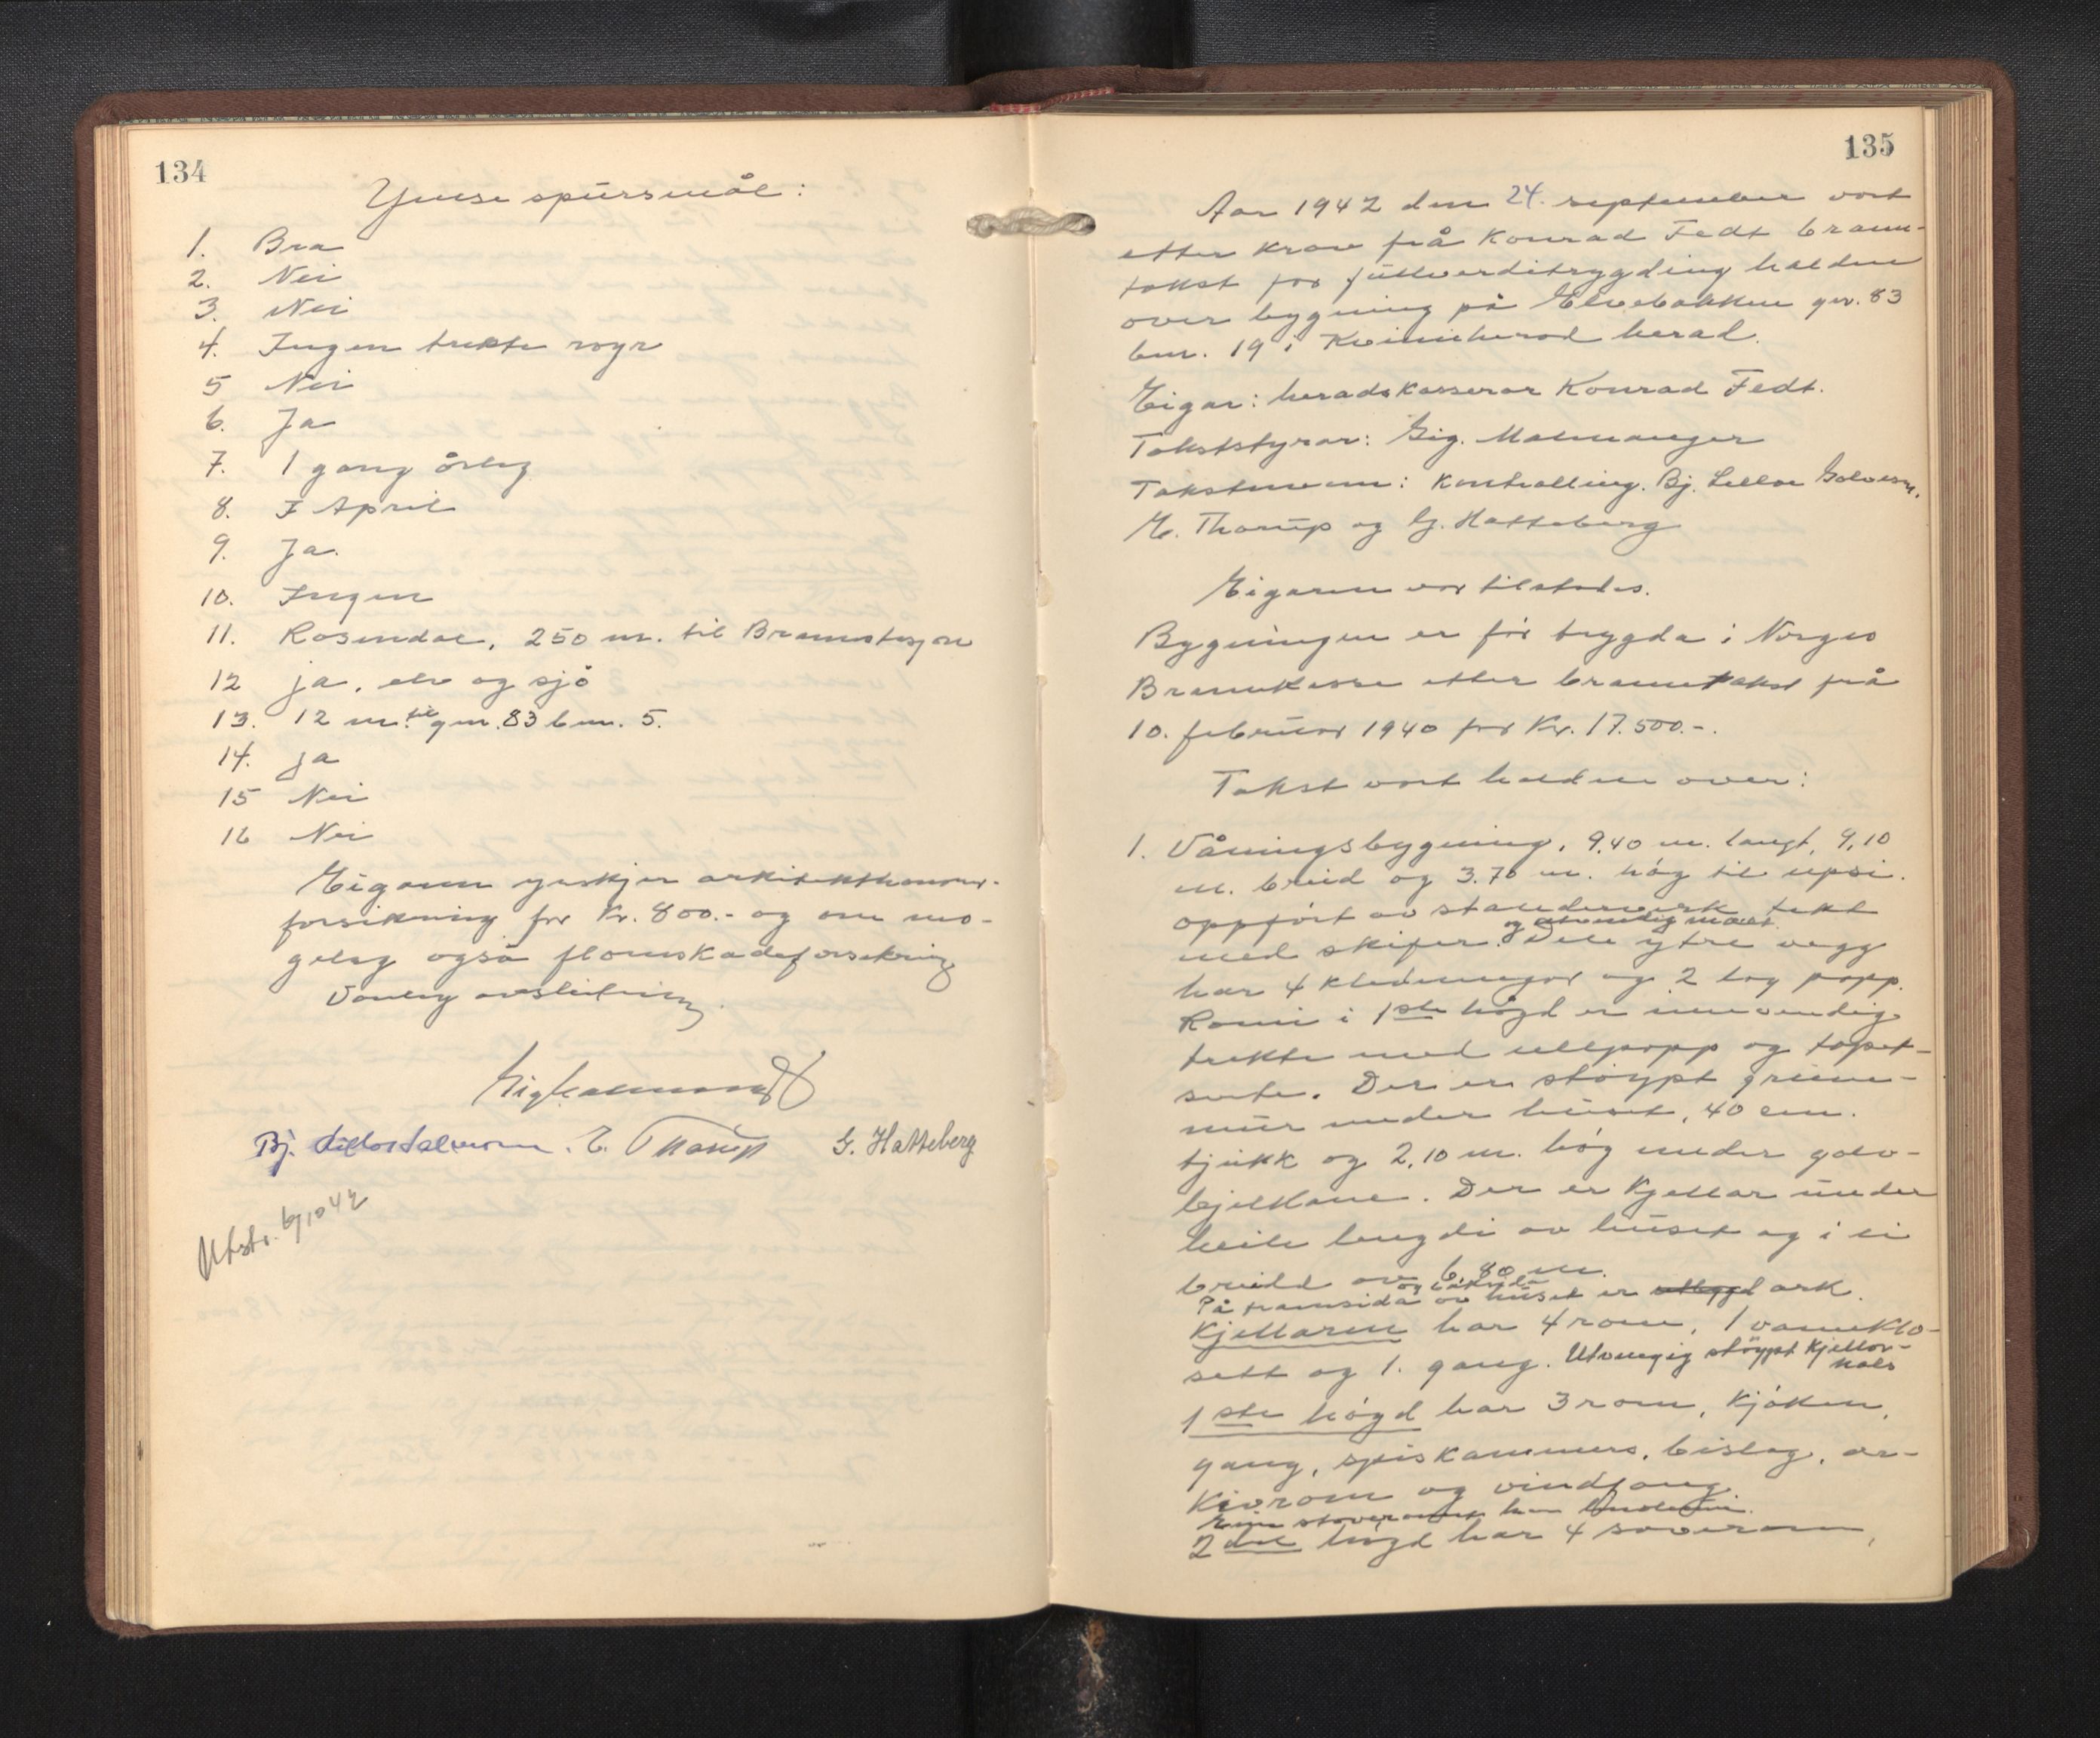 134
Ymse spürsmål:
1. Bra
2. Nei
3. Nei
4. Ingen trekte royr
5 Nei
6. Ja
7. 1 gang årleg
8. I April
9. Ja.
10. Ingen
11. Rosendal, 250 m. til Brannstasjon
12 ja, elv og sjø
13. 12 m. til gnr. 83 bnr. 5.
14. ja
15 Nei
16 Nei
Eigaren ynskjer arkitekthonorar-
forsikring for Kr. 800.- og om mo-
geleg også flomskadeforsekring
Vanleg avslutning.
Bj. E. Thorup G. Hatteberg
Utskr. 6/10 42
135
Aar 1942 den 24. september vart
etter krav frå Konrad Fedt brann-
takst for fullverditrygding halden
over bygning på Elvebakken gnr. 83
bnr. 19 i Kvinnherad herad.
Eigar: heradskasserar Konrad Fedt.
Takststyrar: Sig. Malmanger
Takstmenn: Kontrolling. Bj. Lillos Salvesen,
E. Thorup og G. Hatteberg
Eigaren var tilstades.
Bygningen er før trygda i Norges
Brannkasse etter branntakst frå
10. februar 1940 for Kr. 17.500.-.
Takst vart halden over:
1. Våningsbygning, 9,40 m. langt, 9,10
m. breid og 3.70 m. høg til upsi.
oppført av standerverk tekt
og utvendig malt.
med skifer. Dei ytre vegg
har 4 kledningar og 2 lag papp.
Romi i 1ste høgd er innvendig
trekte med ullpapp og tapet-
serte. Der er støypt grunn-
mur under huset, 40 cm.
tjukk og 2,10 m. høg under golv-
bjelkane. Der er kjellar under
heile lengdi av huset og i ei
breidd av 6,80 m.
og baksida
På framsida av huset er utbygd ark.
Kjellaren har 4 rom, 1 vannklo-
sett og 1. gang. Utvengig støypt kjellar-
hals
1ste høgd har 3 rom, kjøken,
gang, spiskammers, bislag, ar-
kivrom og vindfang.
2dre høgd har 4 soverom,